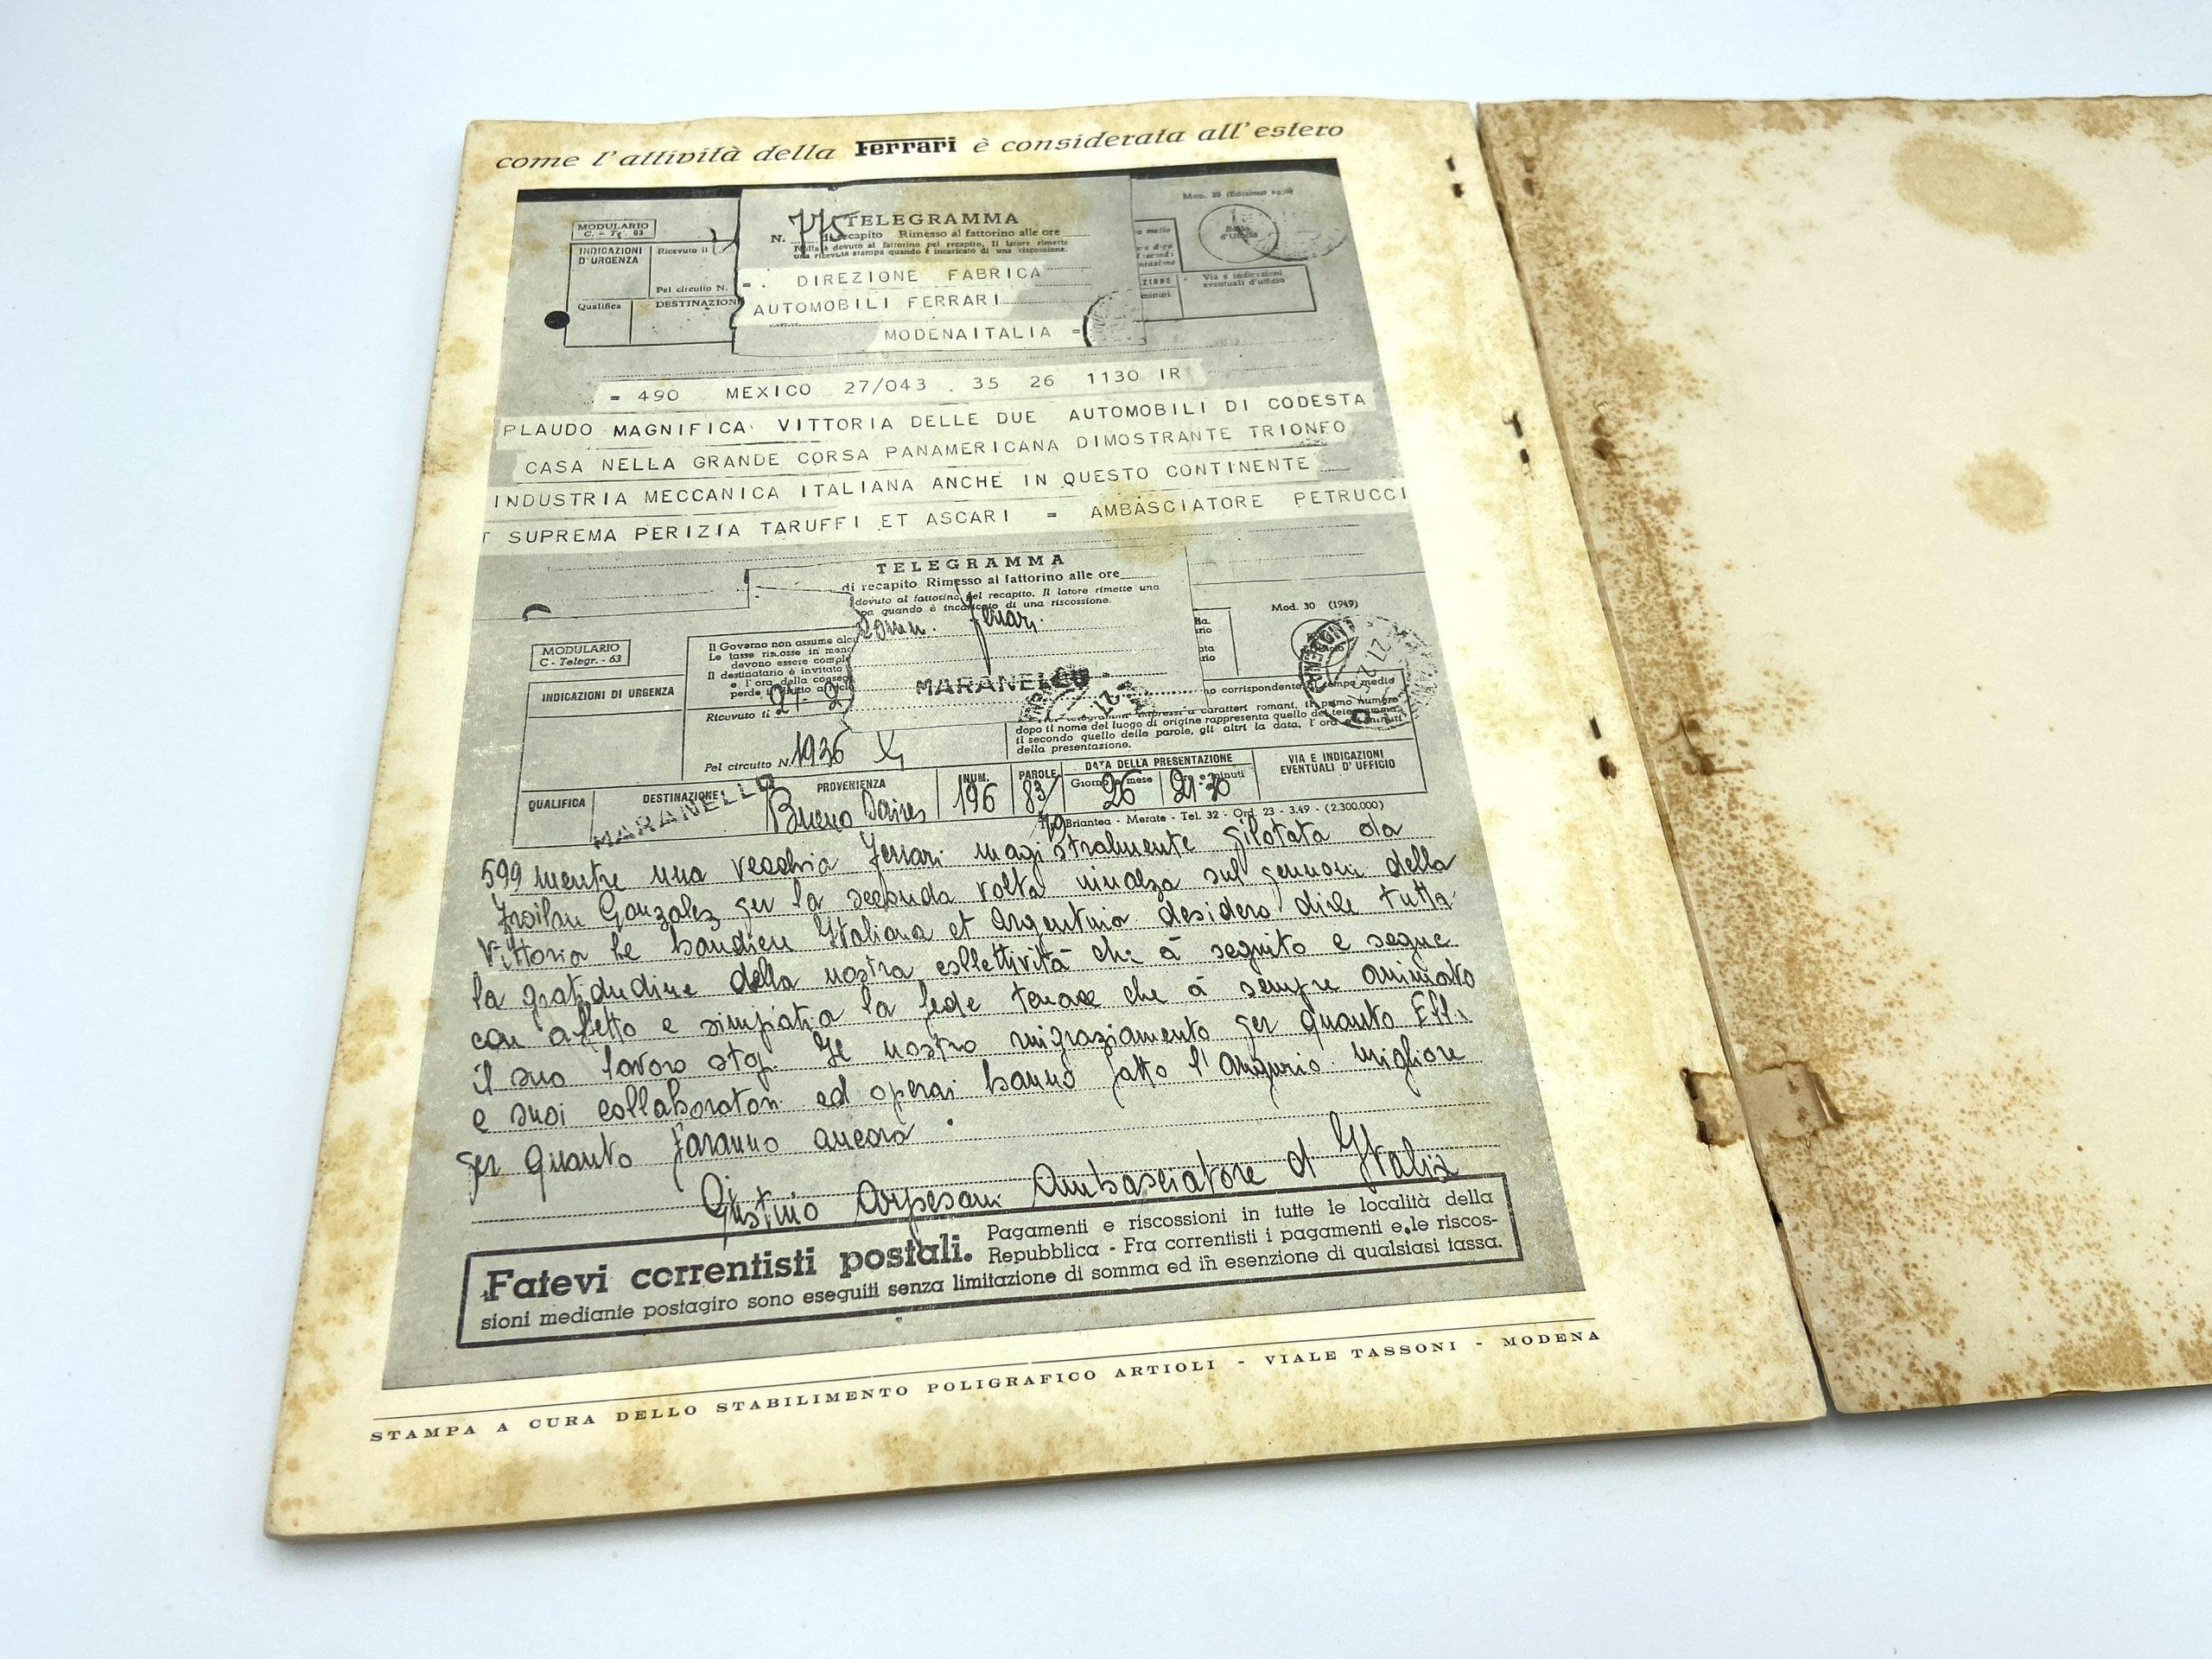 come l'attività della Ferrari è considerata all'estero
MODULARIO
C. - T. 63
INDICAZIONI
D'URGENZA
Ricevuto il
Pel circuito N.
Qualifica
DESTINAZIONE
N. 775 TELEGRAMMA
di recapito Rimesso al fattorino alle ore
Nulla è dovuto al fattorino pel recapito. Il latore rimette
una ricevuta stampa quando è incaricato di una riscossione.
=. DIREZIONE FABRICA
AUTOMOBILI FERRARI
MODENAITALIA =
Mod. 30
Bollo
d'Ufficio
Via e indicazioni
eventuali d'ufficio
= 490 MEXICO 27/043 . 35 26 1130 IR
PLAUDO MAGNIFICA VITTORIA DELLE DUE AUTOMOBILI DI CODESTA
CASA NELLA GRANDE CORSA PANAMERICANA DIMOSTRANTE TRIONFO
INDUSTRIA MECCANICA ITALIANA ANCHE IN QUESTO CONTINENTE
T SUPREMA PERIZIA TARUFFI ET ASCARI = AMBASCIATORE PETRUCCI
TELEGRAMMA
di recapito Rimesso al fattorino alle ore
dovuto al fattorino pel recapito. Il latore rimette una
pa quando è incaricato di una riscossione.
Comm. Ferrari
MARANELLO
Mod. 30 (1949)
MODULARIO
C - Telegr. - 63
INDICAZIONI DI URGENZA
Il Governo non assume alcu
Le tasse riscosse in meno
devono essere comple
Il destinatario è invitato
e l'ora della conseg
perde
Ricevuto il
Pel circuito N. 1936
no corrispondente al tempo medio
telegrammi impressi a caratteri romani, il primo numero
dopo il nome del luogo di origine rappresenta quello del telegramma,
il secondo quello delle parole, gli altri la data, l'ora e i minuti
della presentazione.
QUALIFICA
DESTINAZIONE
MARANELLO
PROVENIENZA
Bueno Daires
NUM.
196
PAROLE
83
DATA DELLA PRESENTAZIONE
Giorno e mese
26
Ore e minuti
21.30
VIA E INDICAZIONI
EVENTUALI D'UFFICIO
Briantea - Merate - Tel. 32 - Ord. 23 - 3.49 - (2.300.000)
599 mentre una vecchia Ferrari magistralmente pilotata da
Froilan Gonzalez per la seconda volta rinalza sul pennoni della
Vittoria le bandiere Italiana et Argentina desidero dirle tutta
la gratidudine della nostra collettività che à seguito e segue
con affetto e simpatia la fede tenace che à sempre animato
il suo lavoro stop. Il nostro ringraziamento per quanto Ell.
e suoi collaboratori ed operai hanno fatto l'Augurio migliore
per quanto faranno ancora .
Giustino Arpesani Ambasciatore d Italia
Fatevi correntisti postali. Pagamenti e riscossioni in tutte le località della
Repubblica - Fra correntisti i pagamenti e le riscos-
sioni mediante postagiro sono eseguiti senza limitazione di somma ed in esenzione di qualsiasi tassa.
STAMPA A CURA DELLO STABILIMENTO POLIGRAFICO ARTIOLI - VIALE TASSONI - MODENA